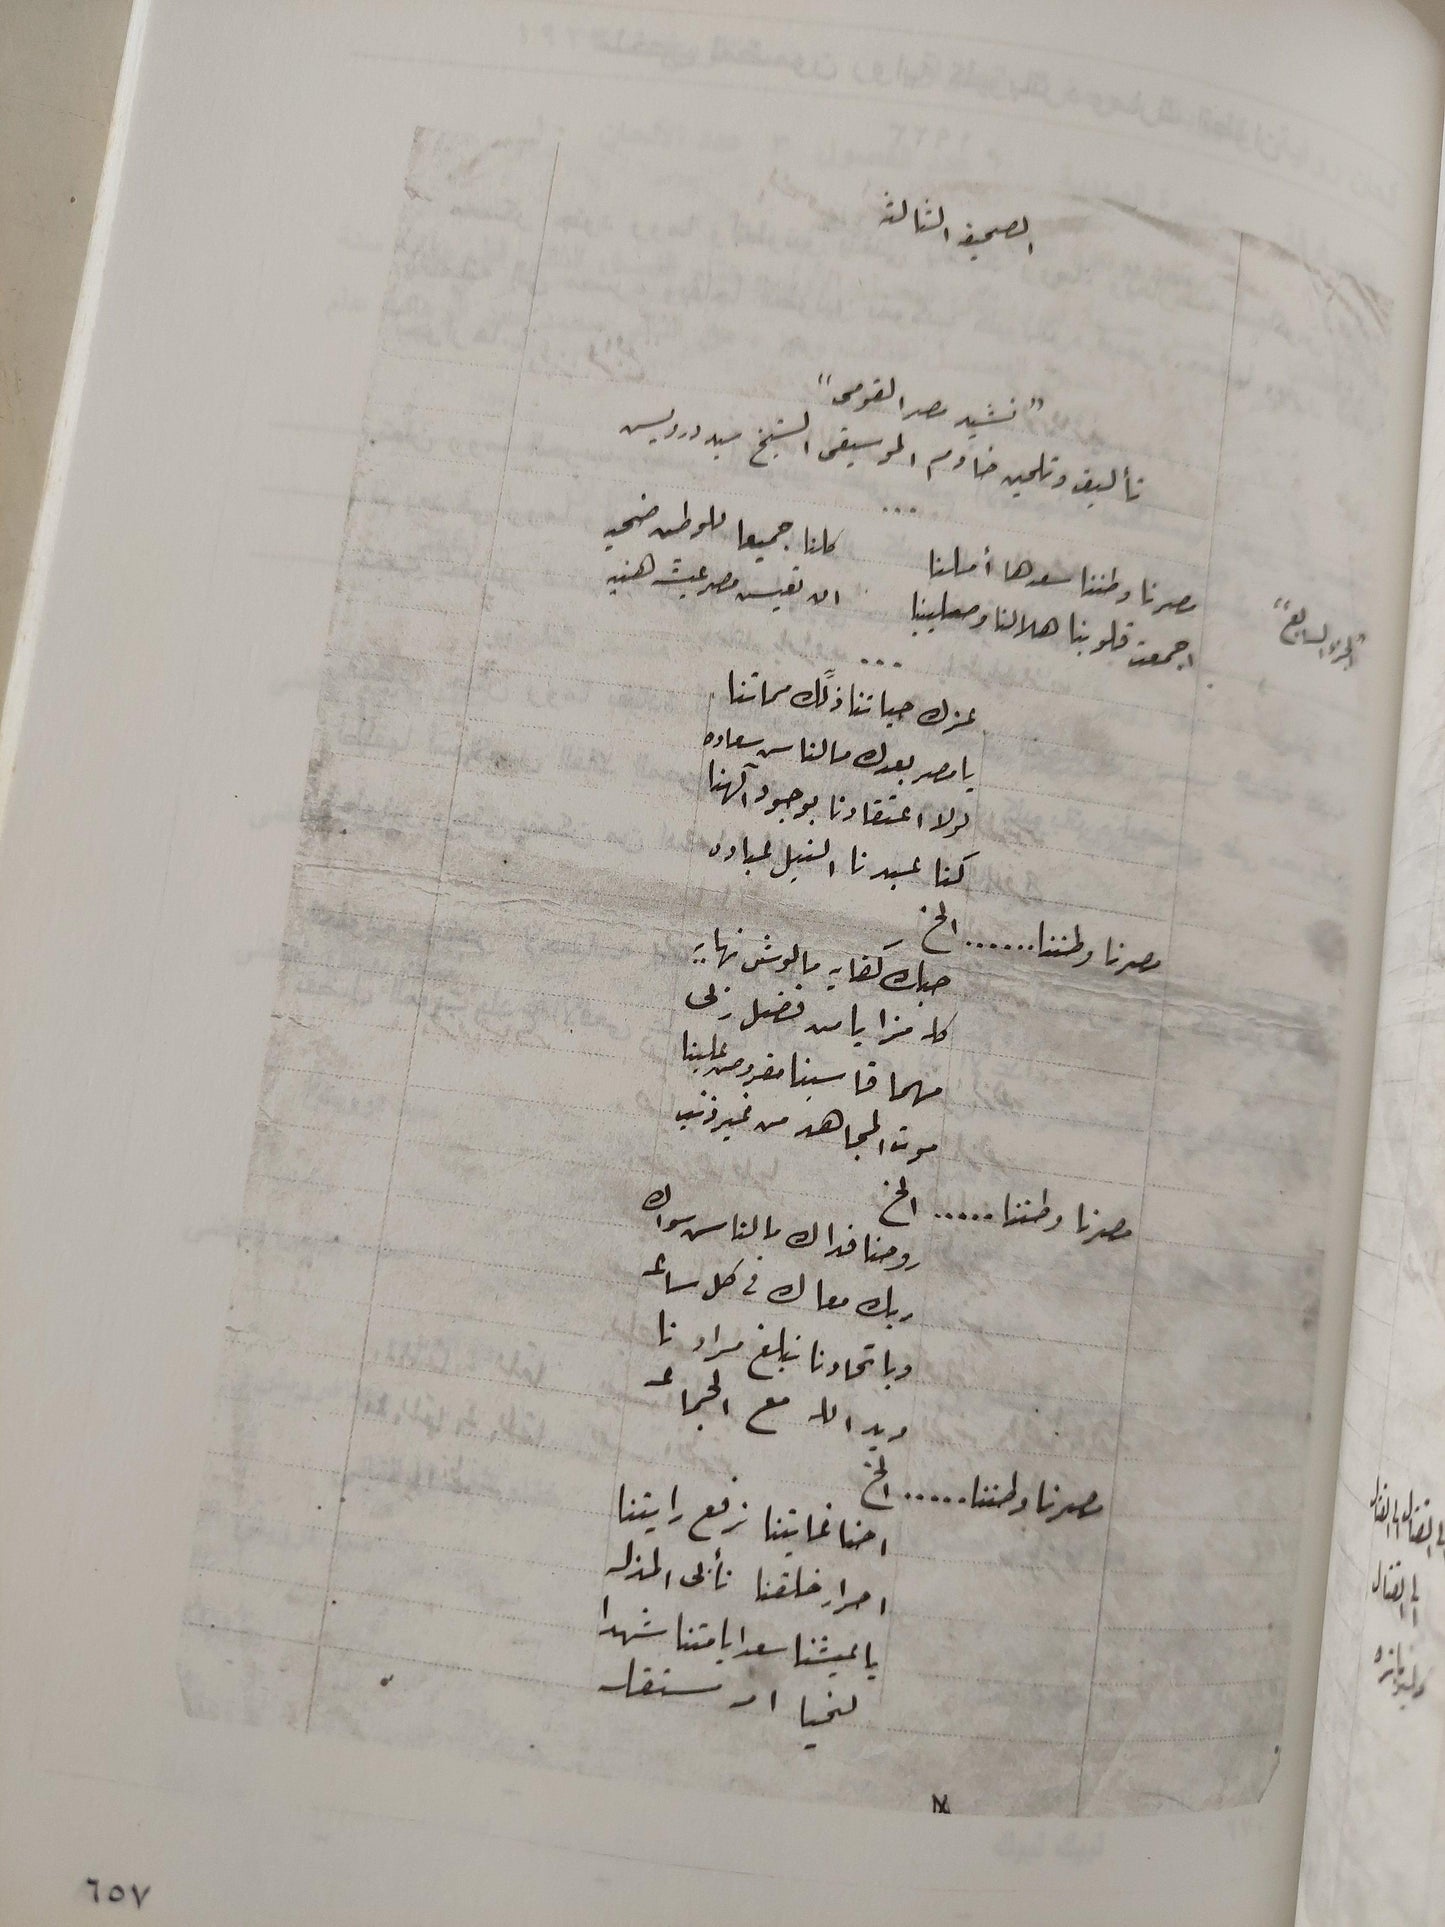 الصحيفه الثالثه
"نشيد مصر القومى"
تأليف وتلحين خادم الموسيقى الشيخ سيد درويش
...
مصرنا وطننا سعدها أملنا كلنا جميعا للوطن ضحيه
اجمعت قلوبنا هلالنا وصليبنا ان تعيش مصر عيشه هنيه
...
عزك حياتنا ذلك مماتنا
يا مصر بعدك مالناس سعاده
لولا اعتقادنا بوجود آلهنا
كنا عبدنا النيل عباده
مصرنا وطننا ...... الخ
حبك كفايه مالوش نهايه
مهما قاسينا مفروض علينا
موت المجاهد من غير ذنب
مصرنا وطننا ..... الخ
روحنا فداك مالناس سواك
ربك معاك فى كل ساعه
وباتحادنا نبلغ مرادنا
ويد الله مع الجماعه
مصرنا وطننا ..... الخ
احنا غايتنا نرفع رايتنا
احرار خلقنا نأبى المذله
يا عيشنا سعدا يا متنا شهدا
لنحيا امه مستقله
٦٥٧
الى القتال